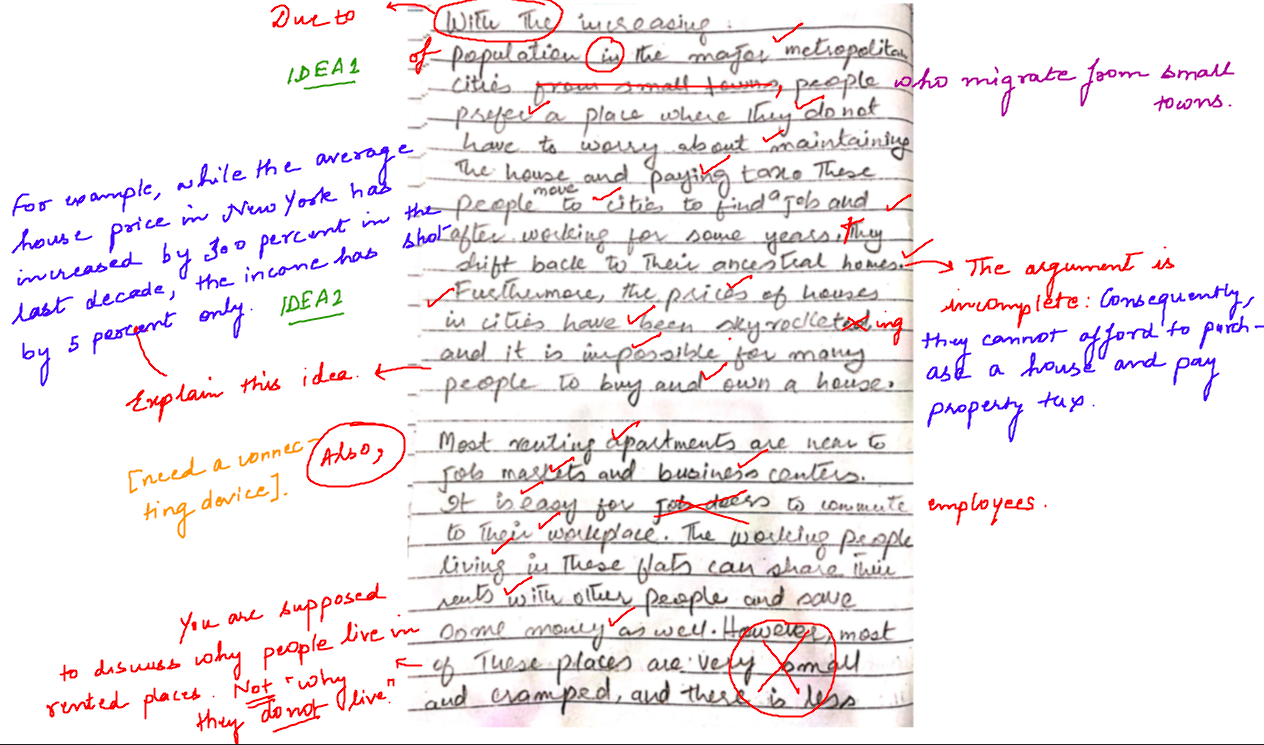 Due to
With the increasing
IDEA1
of population in the major metropolitan
cities from small towns, people
who migrate from small
towns.
prefer a place where they do not
have to worry about maintaining
the house and paying taxe These
people move to cities to find a job and
after working for some years, They
shift back to their ancestral homes.
For example, while the average
house price in New York has
increased by 300 percent in the
last decade, the income has shot
by 5 percent only.
IDEA2
The argument is
incomplete: Consequently,
they cannot afford to purch-
ase a house and pay
property tax.
Furthermore, the prices of houses
in cities have been skyrocketed ing
and it is impossible for many
people to buy and own a house.
Explain this idea.
[need a connec-
ting device].
Also,
Most renting apartments are near to
job markets and business centers.
It is easy for job doers to commute
employees.
to their workplace. The working people
living in these flats can share their
rents with other people and save
some money as well. However, most
of these places are very small
and cramped, and there is less
You are supposed
to discuss why people live in
rented places. Not "why
they do not live."